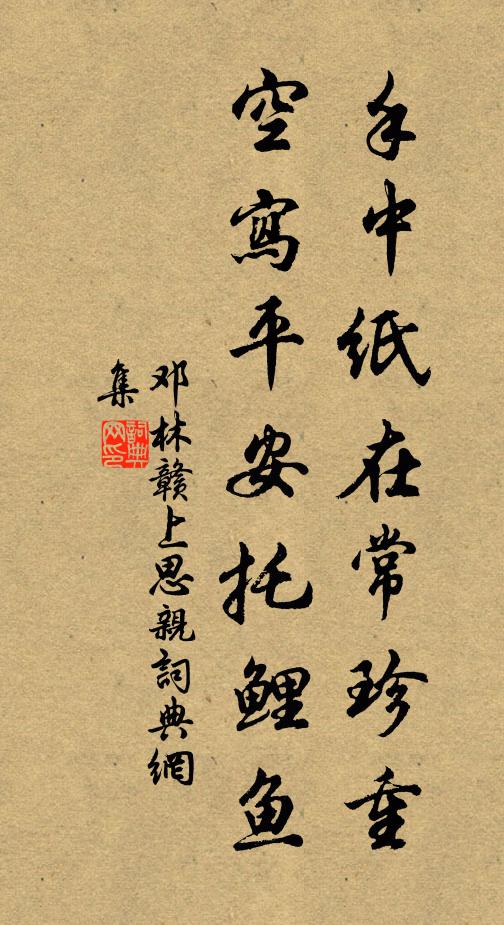 手中紙在常珍重
空寫平安托鲤鱼
邓林赣上思親詞典網
集
詞典网印